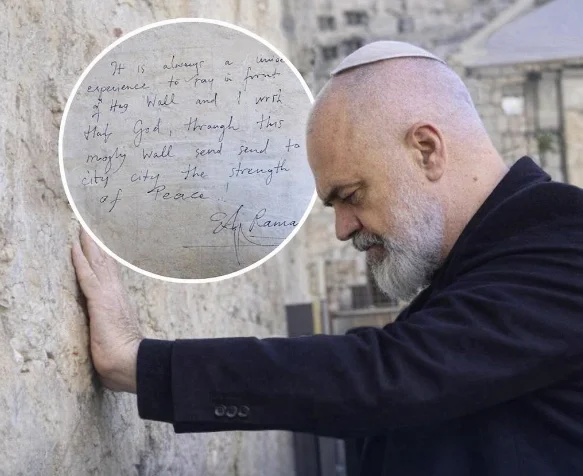 It is always a unique
experience to pray in front
of this Wall and I wish
that God, through this
mighty Wall send send to
city city the strength
of Peace!
Edi Rama